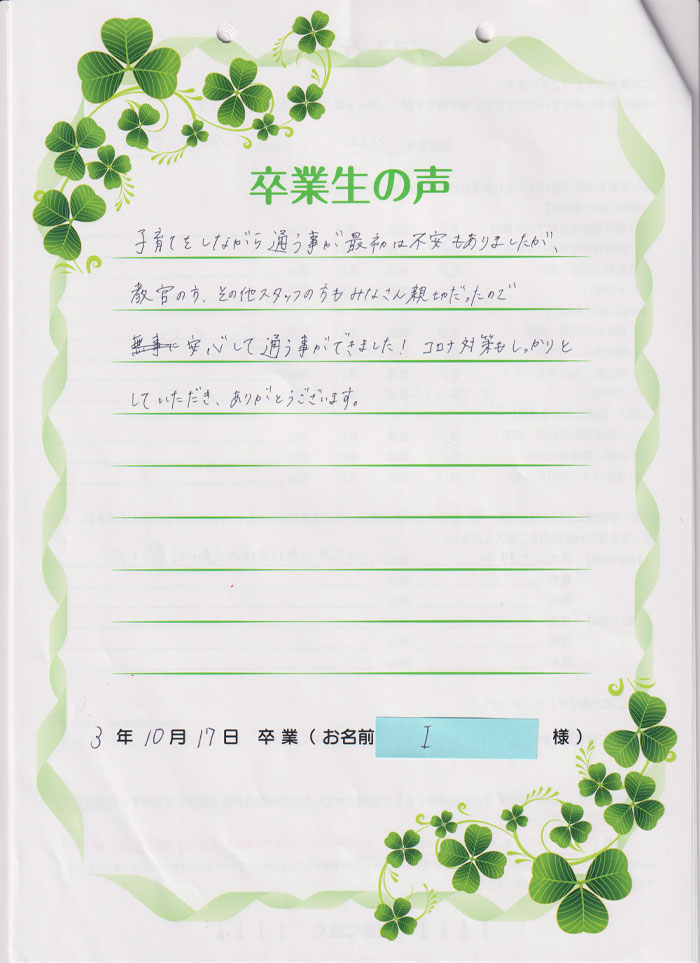 卒業生の声
子育てをしながら通う事が最初は不安もありましたが、
教官の方、その他スタッフの方もみなさん親切だったので
無事に安心して通う事ができました! コロナ対策もしっかりと
していただき、ありがとうございます。
3年10月17日 卒業(お名前 I 様)